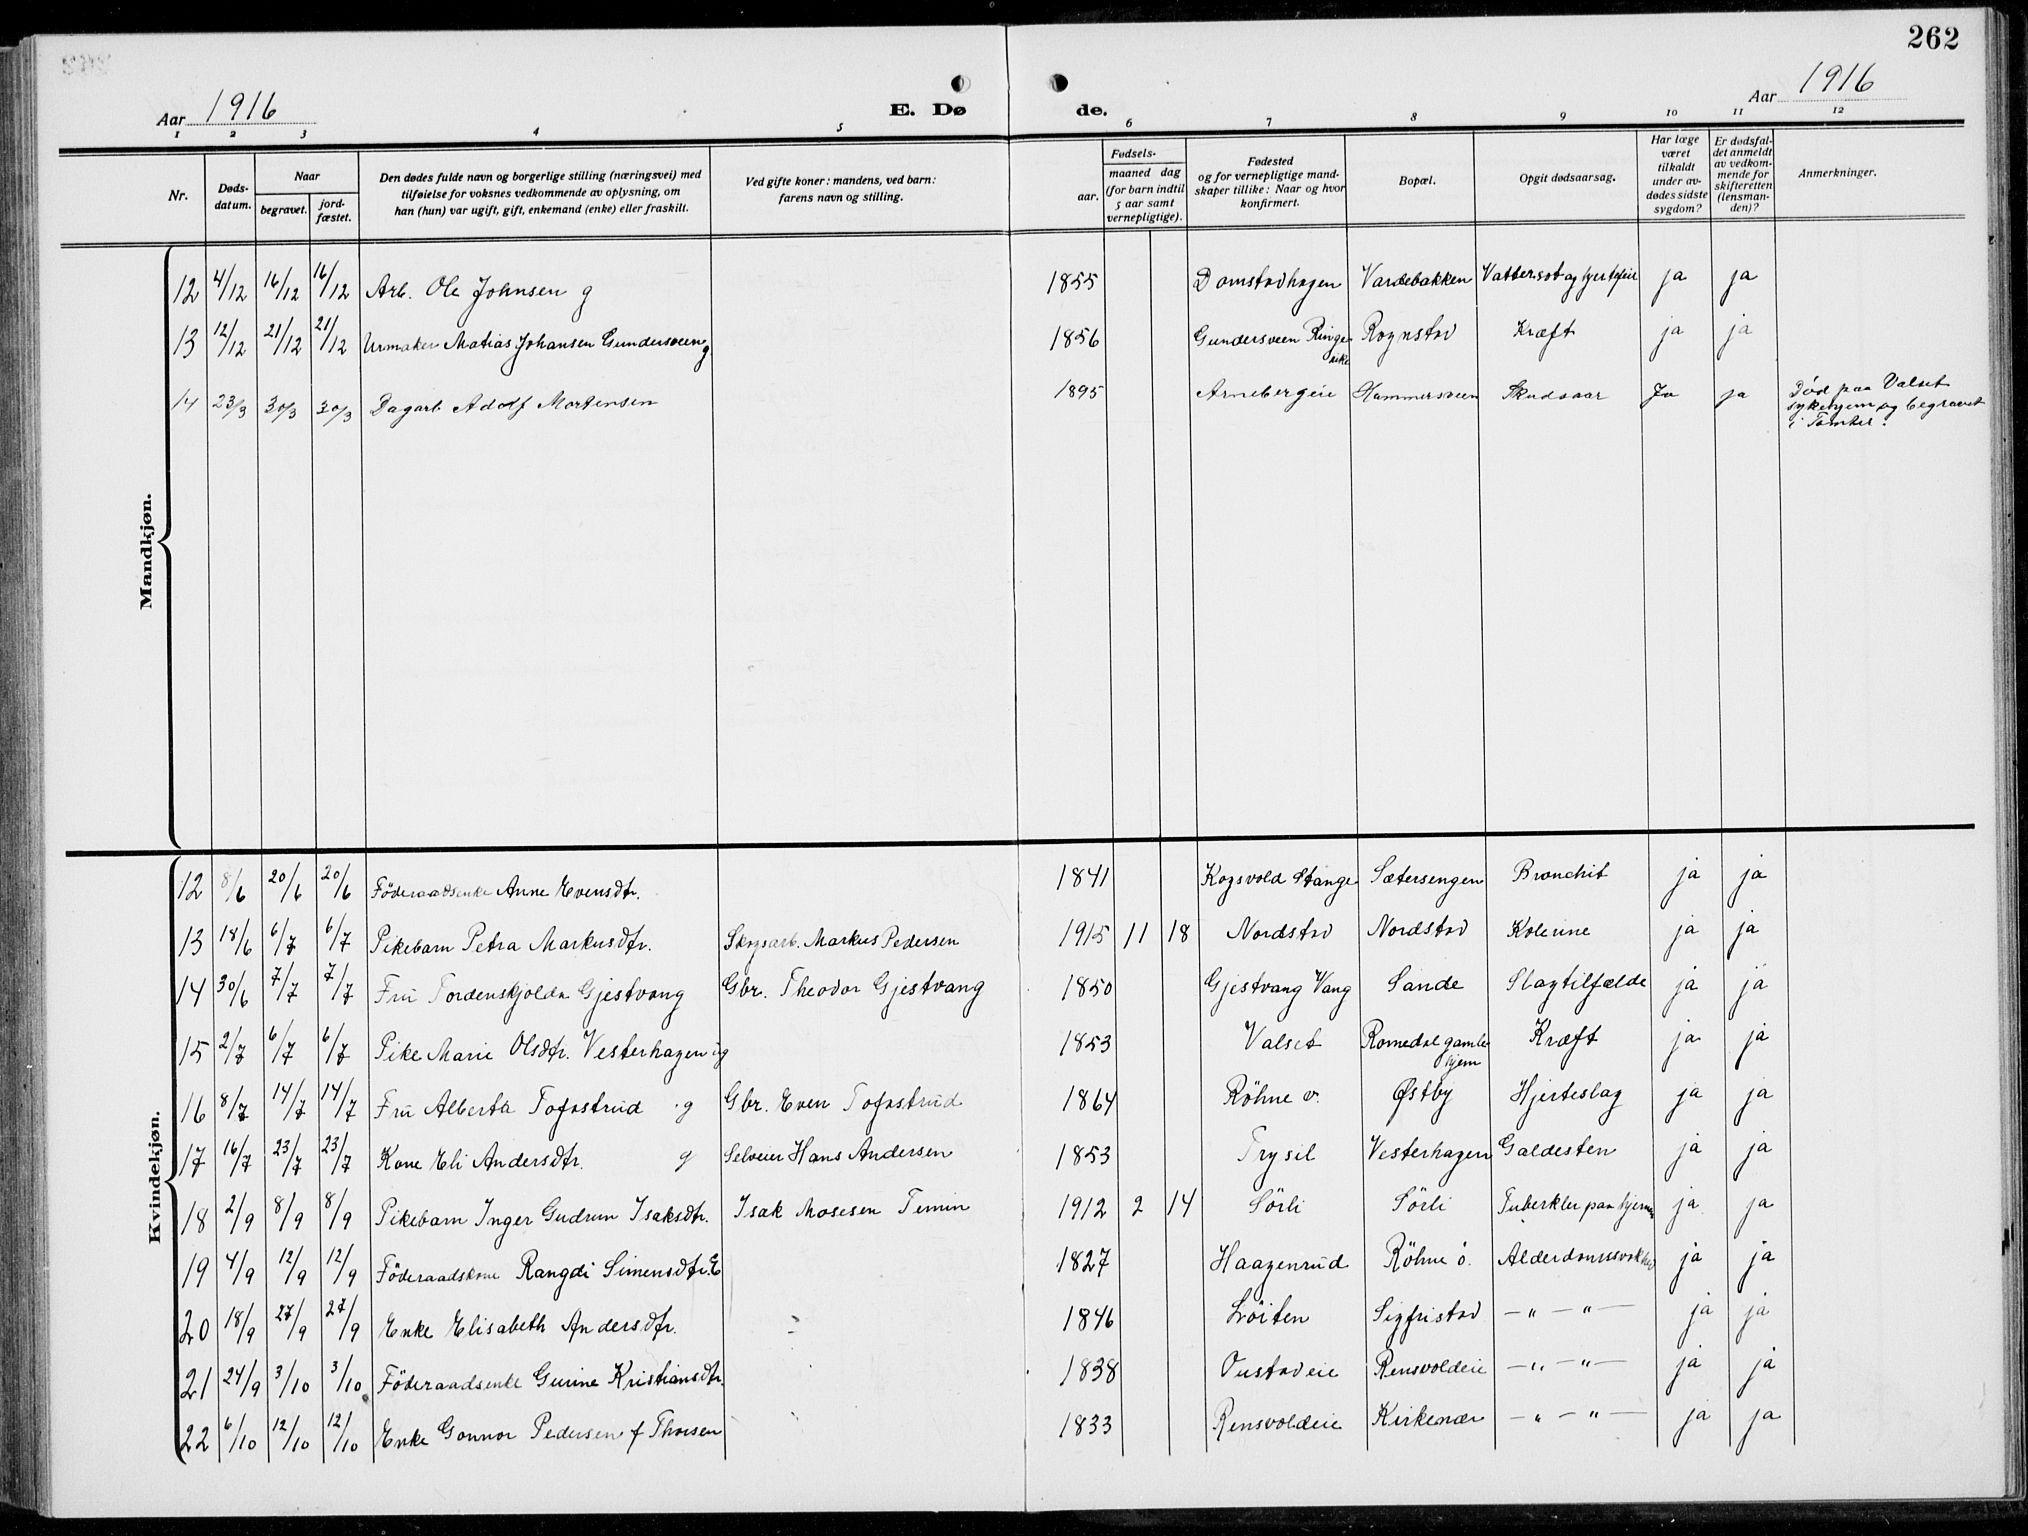 262
Aar 1916
E. Døde.
Aar 1916
1 2 3 4 5 6 7 8 9 10 11 12
Nr.
Døds-
datum.
Naar
begravet.
jord-
fæstet.
Den dødes fulde navn og borgerlige stilling (næringsvei) med
tilføielse for voksnes vedkommende av oplysning, om
han (hun) var ugift, gift, enkemand (enke) eller fraskilt.
Ved gifte koner: mandens, ved barn:
farens navn og stilling.
Fødsels-
aar.
maaned dag
(for barn indtil
5 aar samt
vernepligtige).
Fødested
og for vernepligtige mand-
skaper tillike: Naar og hvor
konfirmert.
Bopæl.
Opgit dødsaarsag.
Har læge
været
tilkaldt
under av-
dødes sidste
sygdom?
Er dødsfal-
det anmeldt
av vedkom-
mende for
skifteretten
(lensman-
den)?
Anmerkninger.
Mandkjøn.
12 4/12 16/12 16/12 Arb. Ole Johnsen g 1855 Domstadhagen Vardebakken Vattersot og hjertefeil ja ja
13 12/12 21/12 21/12 Urmaker Matias Johansen Gundersveen g 1856 Gundersveen Ringerike Rognstad Kræft ja ja
14 23/3 30/3 30/3 Dagarb. Adolf Mortensen 1895 Arnebergeie Hammersveen Skudsaar Ja ja Död paa Valset
sykehjem og begravet
i Tomter.
Kvindekjøn.
12 8/6 20/6 20/6 Föderaadsenke Anne Evensdtr. 1841 Kogsvold Stange Sætersengen Bronchit ja ja
13 18/6 6/7 6/7 Pikebarn Petra Markusdtr. Skogsarb. Markus Pedersen 1915 11 18 Nordstad Nordstad Kolerine ja ja
14 30/6 7/7 7/7 Fru Tordenskjolda Gjestvang Gbr. Theodor Gjestvang 1850 Gjestvang Vang Sande Slagtilfælde ja ja
15 2/7 6/7 6/7 Pike Marie Olsdtr. Vesterhagen ug 1853 Valset Romedal gamlehjem Kræft ja ja
16 8/7 14/7 14/7 Fru Alberta Tofastrud g Gbr. Even Tofastrud 1864 Röhne v. Østby Hjerteslag ja ja
17 16/7 23/7 23/7 Kone Eli Andersdtr. g Selveier Hans Andersen 1853 Trysil Vesterhagen Galdesten ja ja
18 2/9 8/9 8/9 Pikebarn Inger Gudrun Isaksdtr. Isak Mosesen Temin 1912 2 14 Sörli Sörli Tuberkler paa hjernen ja ja
19 4/9 12/9 12/9 Föderaadskone Rangdi Simensdtr. E 1827 Haagenrud Röhne ö. Alderdomssvakhed ja ja
20 18/9 27/9 27/9 Enke Elisabeth Andersdtr. 1846 Löiten Sigfristad — " — " — ja ja
21 24/9 3/10 3/10 Föderaadsenke Gurine Kristiansdtr. 1838 Oustadeie Rensvoldeie — " — " — ja ja
22 6/10 12/10 12/10 Enke Gonnor Pedersen f Thoresen 1833 Rensvoldeie Kirkenær — " — " — ja ja